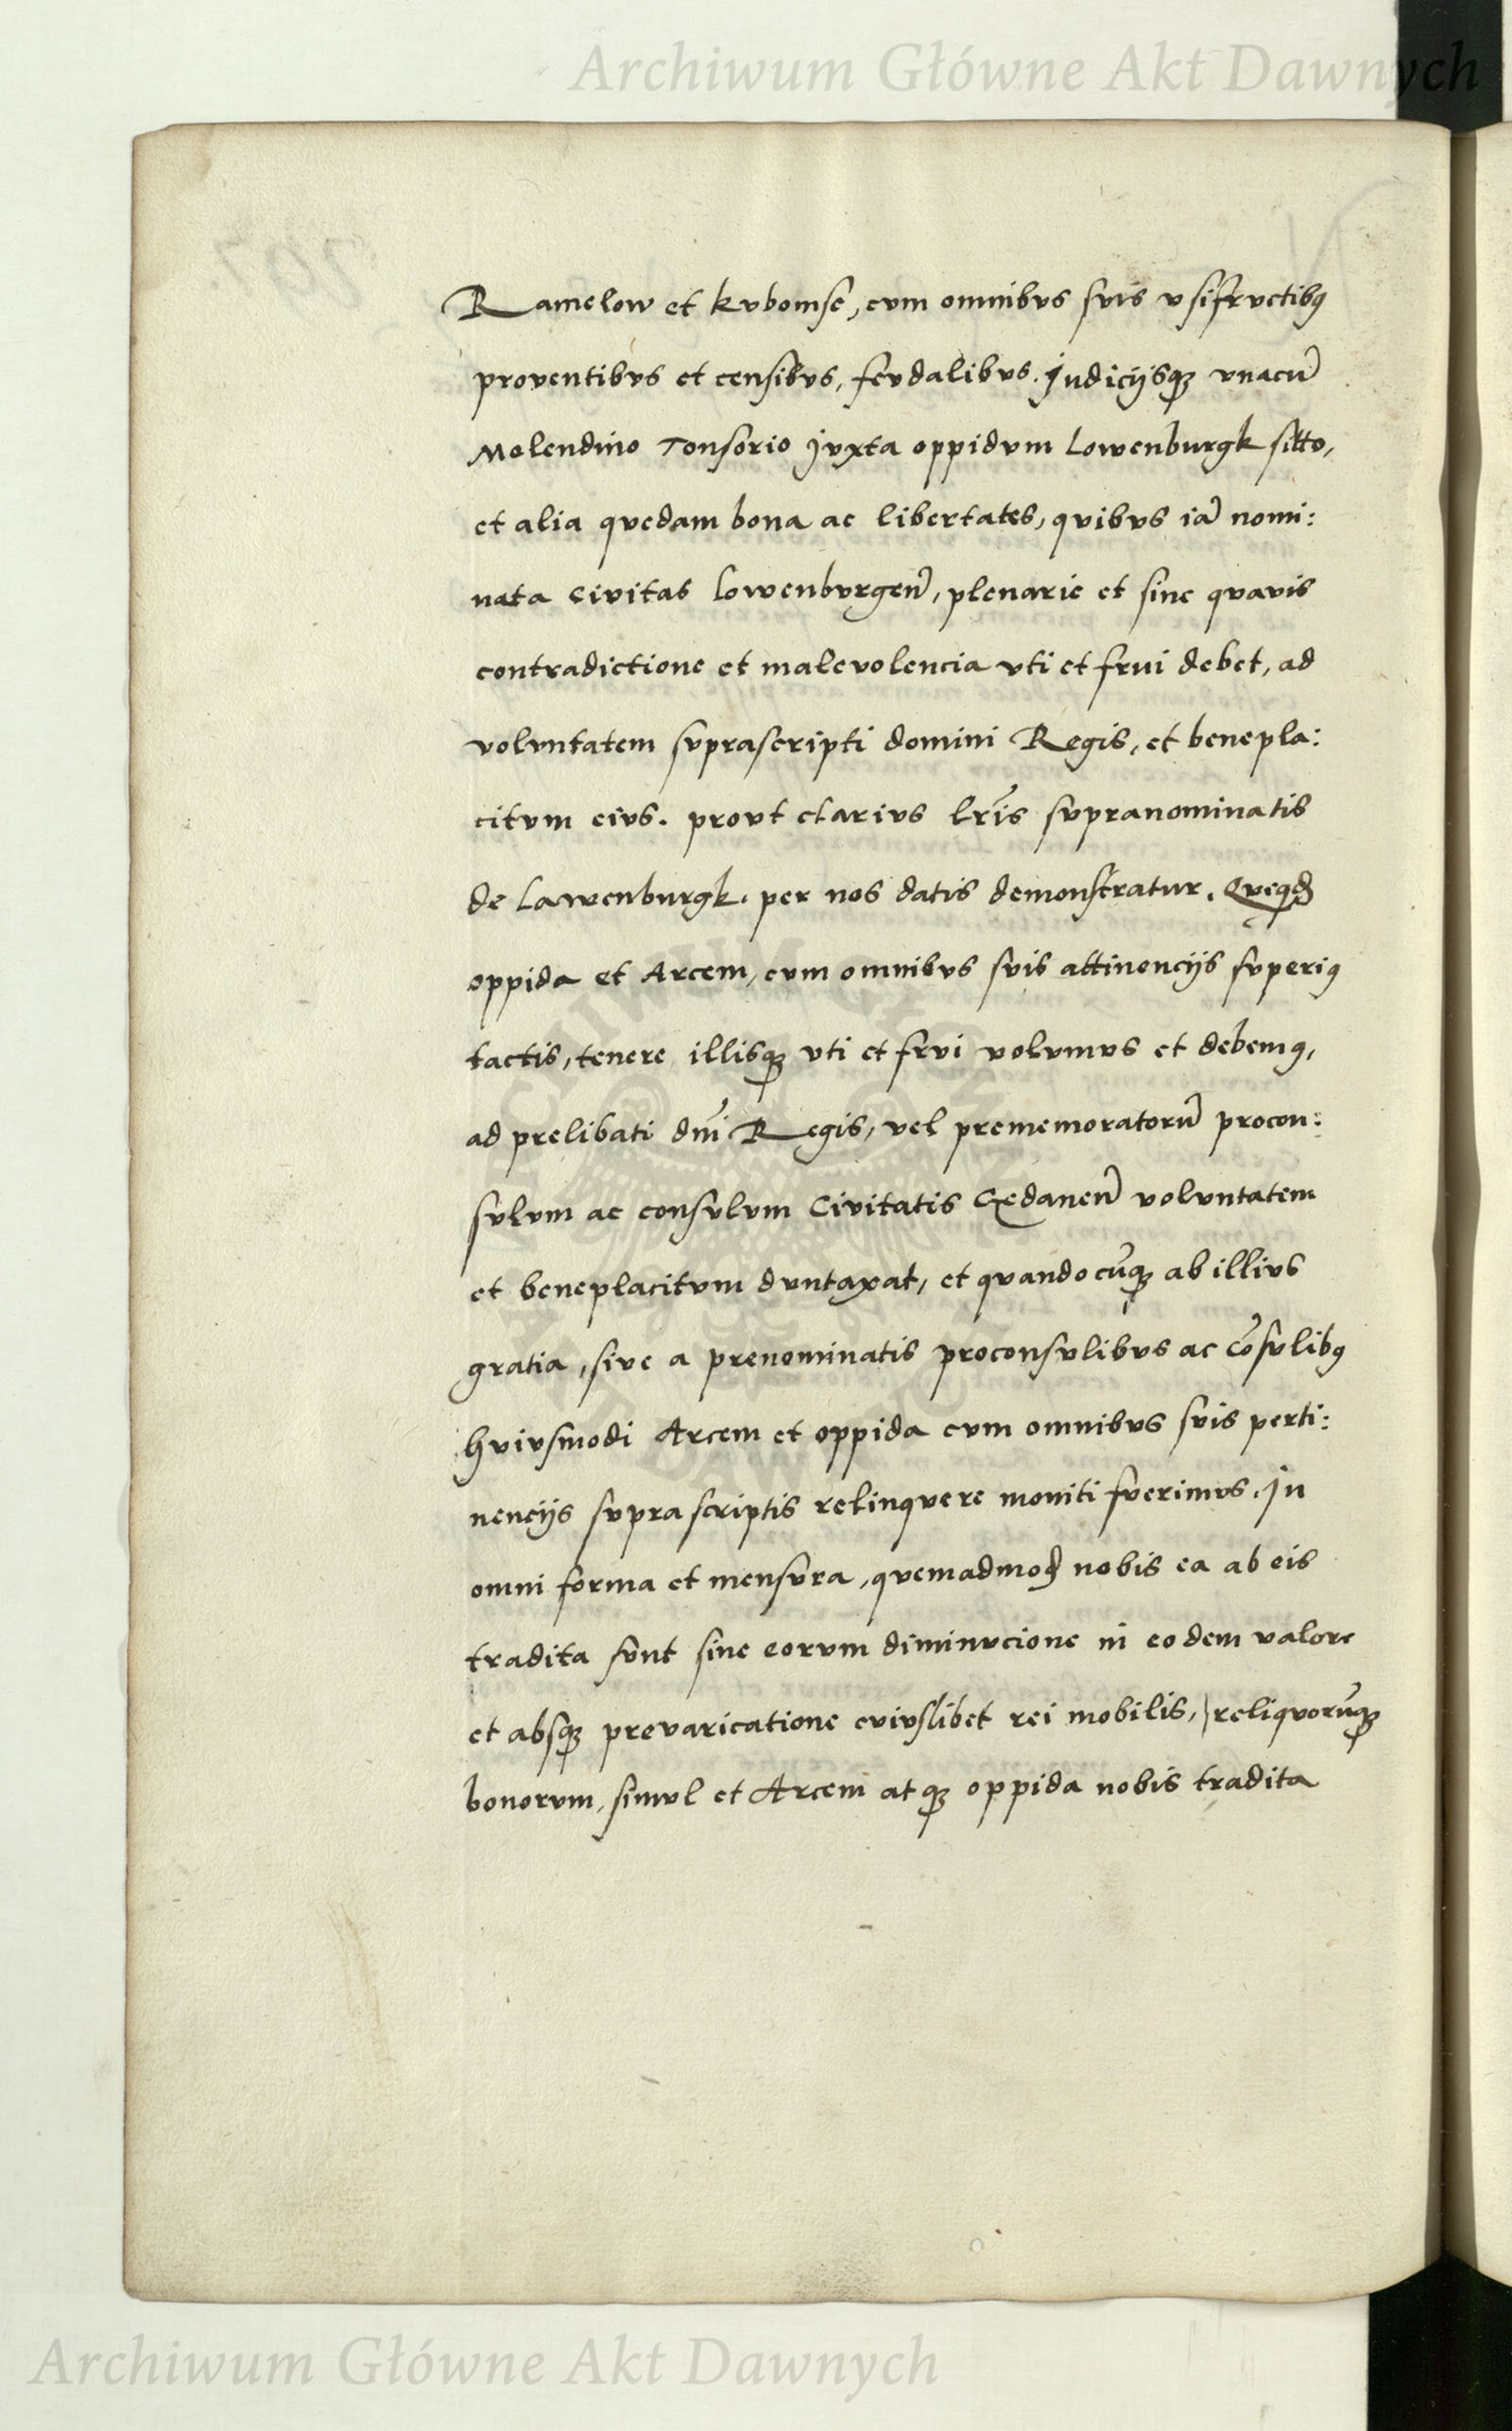 Archiwum Główne Akt Dawnych
Ramelow et kvbomse, cvm omnibvs svis vsifrvctibꝰ
proventibvs et censibvs, fevdalibvs. Judicijsqꝫ vnacu᷑
Molendino Tonsorio Jvxta oppidvm Lowenburgk sitto,
et alia qvedam bona ac libertates, qvibvs ia᷑ nomi:
nata Civitas Lowenbvrgen᷑, plenarie et sine qvavis
contradictione et malevolencia vti et frui debet, ad
volvntatem svprascripti domini Regis, et benepla:
citvm eivs. provt clarivs lr᷑is svpranominatis
de Lawenburgk. per nos datis demonstratur. Qveqd᷑
oppida et Arcem, cvm omnibvs svis attinencijs svperiꝰ
tactis, tenere illisqꝫ vti et frvi volvmvs et debemꝰ,
ad prelibati dn᷑i Regis, vel prememoratoru᷑ procon:
svlvm ac consvlvm Civitatis Gedanen᷑ volvntatem
et beneplacitvm dvntaxat, et qvandocu᷑qꝫ ab illivs
gratia, sive a prenominatis proconsvlibvs ac co᷑svlibꝰ
hvivsmodi Arcem et oppida cvm omnibvs svis perti:
nencijs svprascriptis relinqvere moniti fverimvs. In
omni forma et mensvra, qvemadmod᷑ nobis ea ab eis
tradita svnt sine eorvm diminvcione in eodem valore
et absqꝫ prevaricatione cvivslibet rei mobilis, reliqvoru᷑qꝫ
bonorvm, simvl et Arcem atqꝫ oppida nobis tradita
Archiwum Główne Akt Dawnych